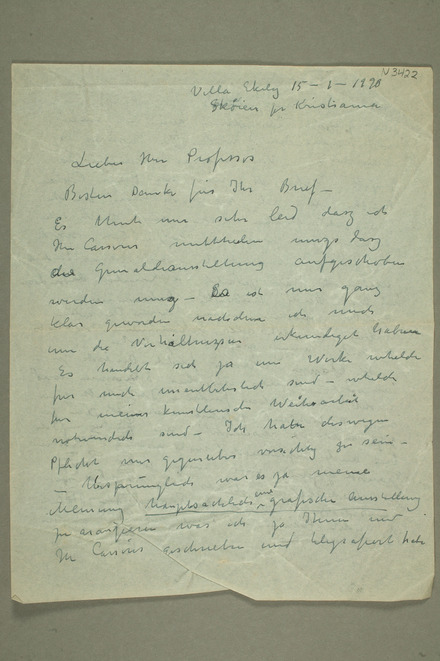 N 3422
Villa Ekely 15 – 1 – 1920
Skøien pr Kristiania
Lieber Herr Professor
Besten Danke für Ihr Brief –
Es thut mir sehr leid dasz ich
Hr Cassirer mittheilen musz dasz
die Gemäldeausstellung aufgeschoben
werden musz – Es ist mir ganz
klar geworden nachdem ich mich
um die Verhältnisse erkundiget habe
Es handelt sich ja um Werke welche
für mich unentbehrlich sind – welche
für meine künstlerische Weiterarbeit
notwendich sind – Ich habe deswegen
Pflicht mir gegenüber vorsichtig zu sein –
– Ursprünglich war es ja meine
Meinung hauptsächlich eine grafische Ausstellung
zu arangieren was ich ja Ihnen und
Hr Cassirer geschrieben und telegrafiert habe